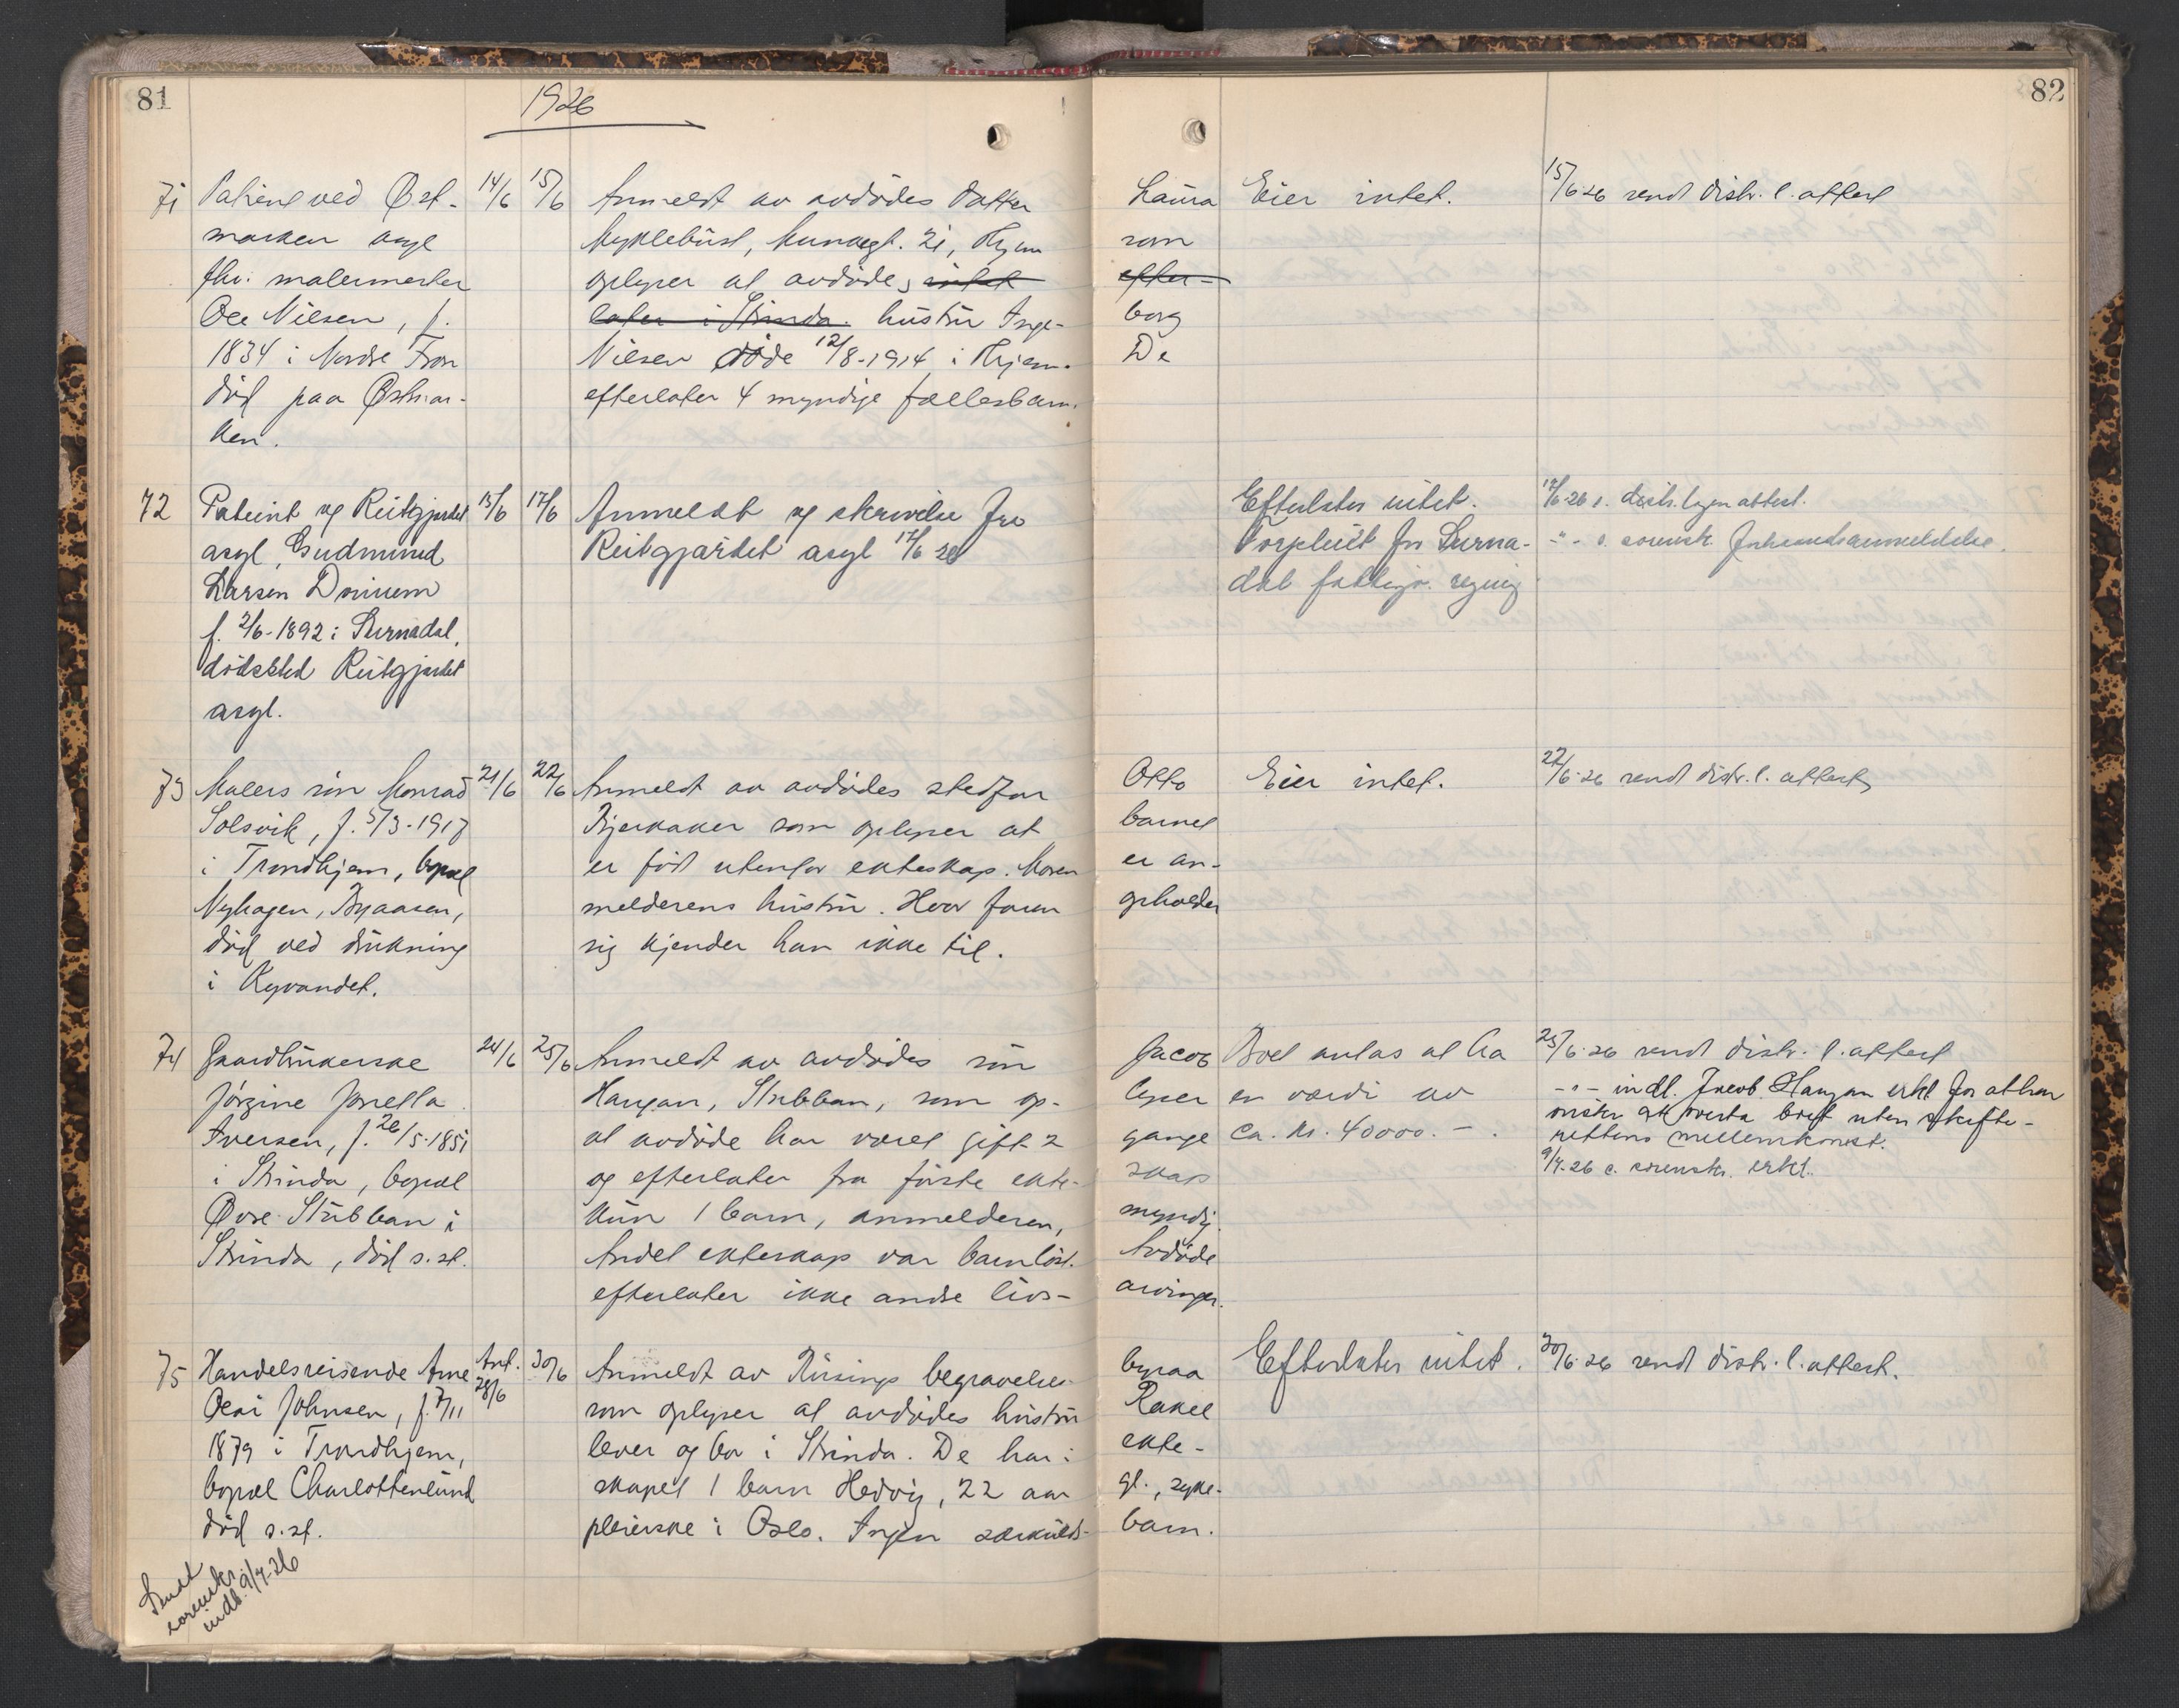 81
1926
82
71
Patient ved Øst-
marken asyl
fhv. malermester
Ole Nilsen, f.
1834 i Nordre Fron
død paa Østmar-
ken.
14/6
15/6
Anmeldt av avdødes datter Laura
Myklebust, Munkegt. 21, Thjem som
oplyser at avdøde, intet efter-
later i Strinda. hustru Inge- borg
Nilsen døde 12/8-1914 i Thjem. De
efterlater 4 myndige fællesbarn.
Eier intet.
15/6-26 sendt distr. l. attest
72
Patient ved Reitgjerdet
asyl, Gudmund
Larsen Drinem
f. 2/6-1892 i Surnadal,
dødssted Reitgjerdet
asyl.
15/6
17/6
Anmeldt ved skrivelse fra
Reitgjærdet asyl 17/6 26
Efterlater intet.
Forpleiet for Surna-
dal fattigv. regning
17/6-26 s. distr. legen attest.
-"- s. sorenskr. forhaandsanmeldelse.
73
Malers søn Monrad
Solsvik, f. 5/3-1917
i Trondhjem, bopæl
Nyhagen, Byaasen,
død ved drukning
i Kyvandet.
21/6
22/6
Anmeldt av avdødes stedfar Otto
Bjerkaker som oplyser at barnet
er født utenfor ekteskap. Moren er an-
melderens hustru. Hvor faren opholder
sig kjender han ikke til.
Eier intet.
22/6-26 sendt distr. l. attest
74
Gaardbrukerske
Jørgine Jonetta
Iversen, f. 26/5-1851
i Strinda, bopæl
Øvre Stubban i
Strinda, død s.st.
24/6
25/6
Anmeldt av avdødes søn Jacob
Haugan, Stubban, som op- lyser
at avdøde har været gift 2 gange
og efterlater fra første ekte- skap
kun 1 barn, anmelderen, myndig.
Andet ekteskap var barnløst. Avdøde
efterlater ikke andre livs- arvinger.
Boet antas at ha
en værdi av
ca. kr. 40000.-.
25/6-26 sendt distr. l. attest
-"- indl. Jacob Haugan erkl. for at han
ønsker at overta boet uten skifte-
rettens mellemkomst.
9/7-26 s. sorenskr. erkl.
75
Handelsreisende Arne
Olai Johnsen, f. 7/11
1879 i Trondhjem,
bopæl Charlottenlund
død s.st.
Ant.
28/6
30/6
Anmeldt av Risings begravelses- byraa
som oplyser at avdødes hustru Rakel
lever og bor i Strinda. De har i ekte-
skapet 1 barn Hedvig, 22 aar gl., syke-
pleierske i Oslo. Ingen særkulds- barn.
Efterlater intet.
30/6-26 sendt distr. l. attest.
Sendt
sorenskr.
indb. 9/7-26